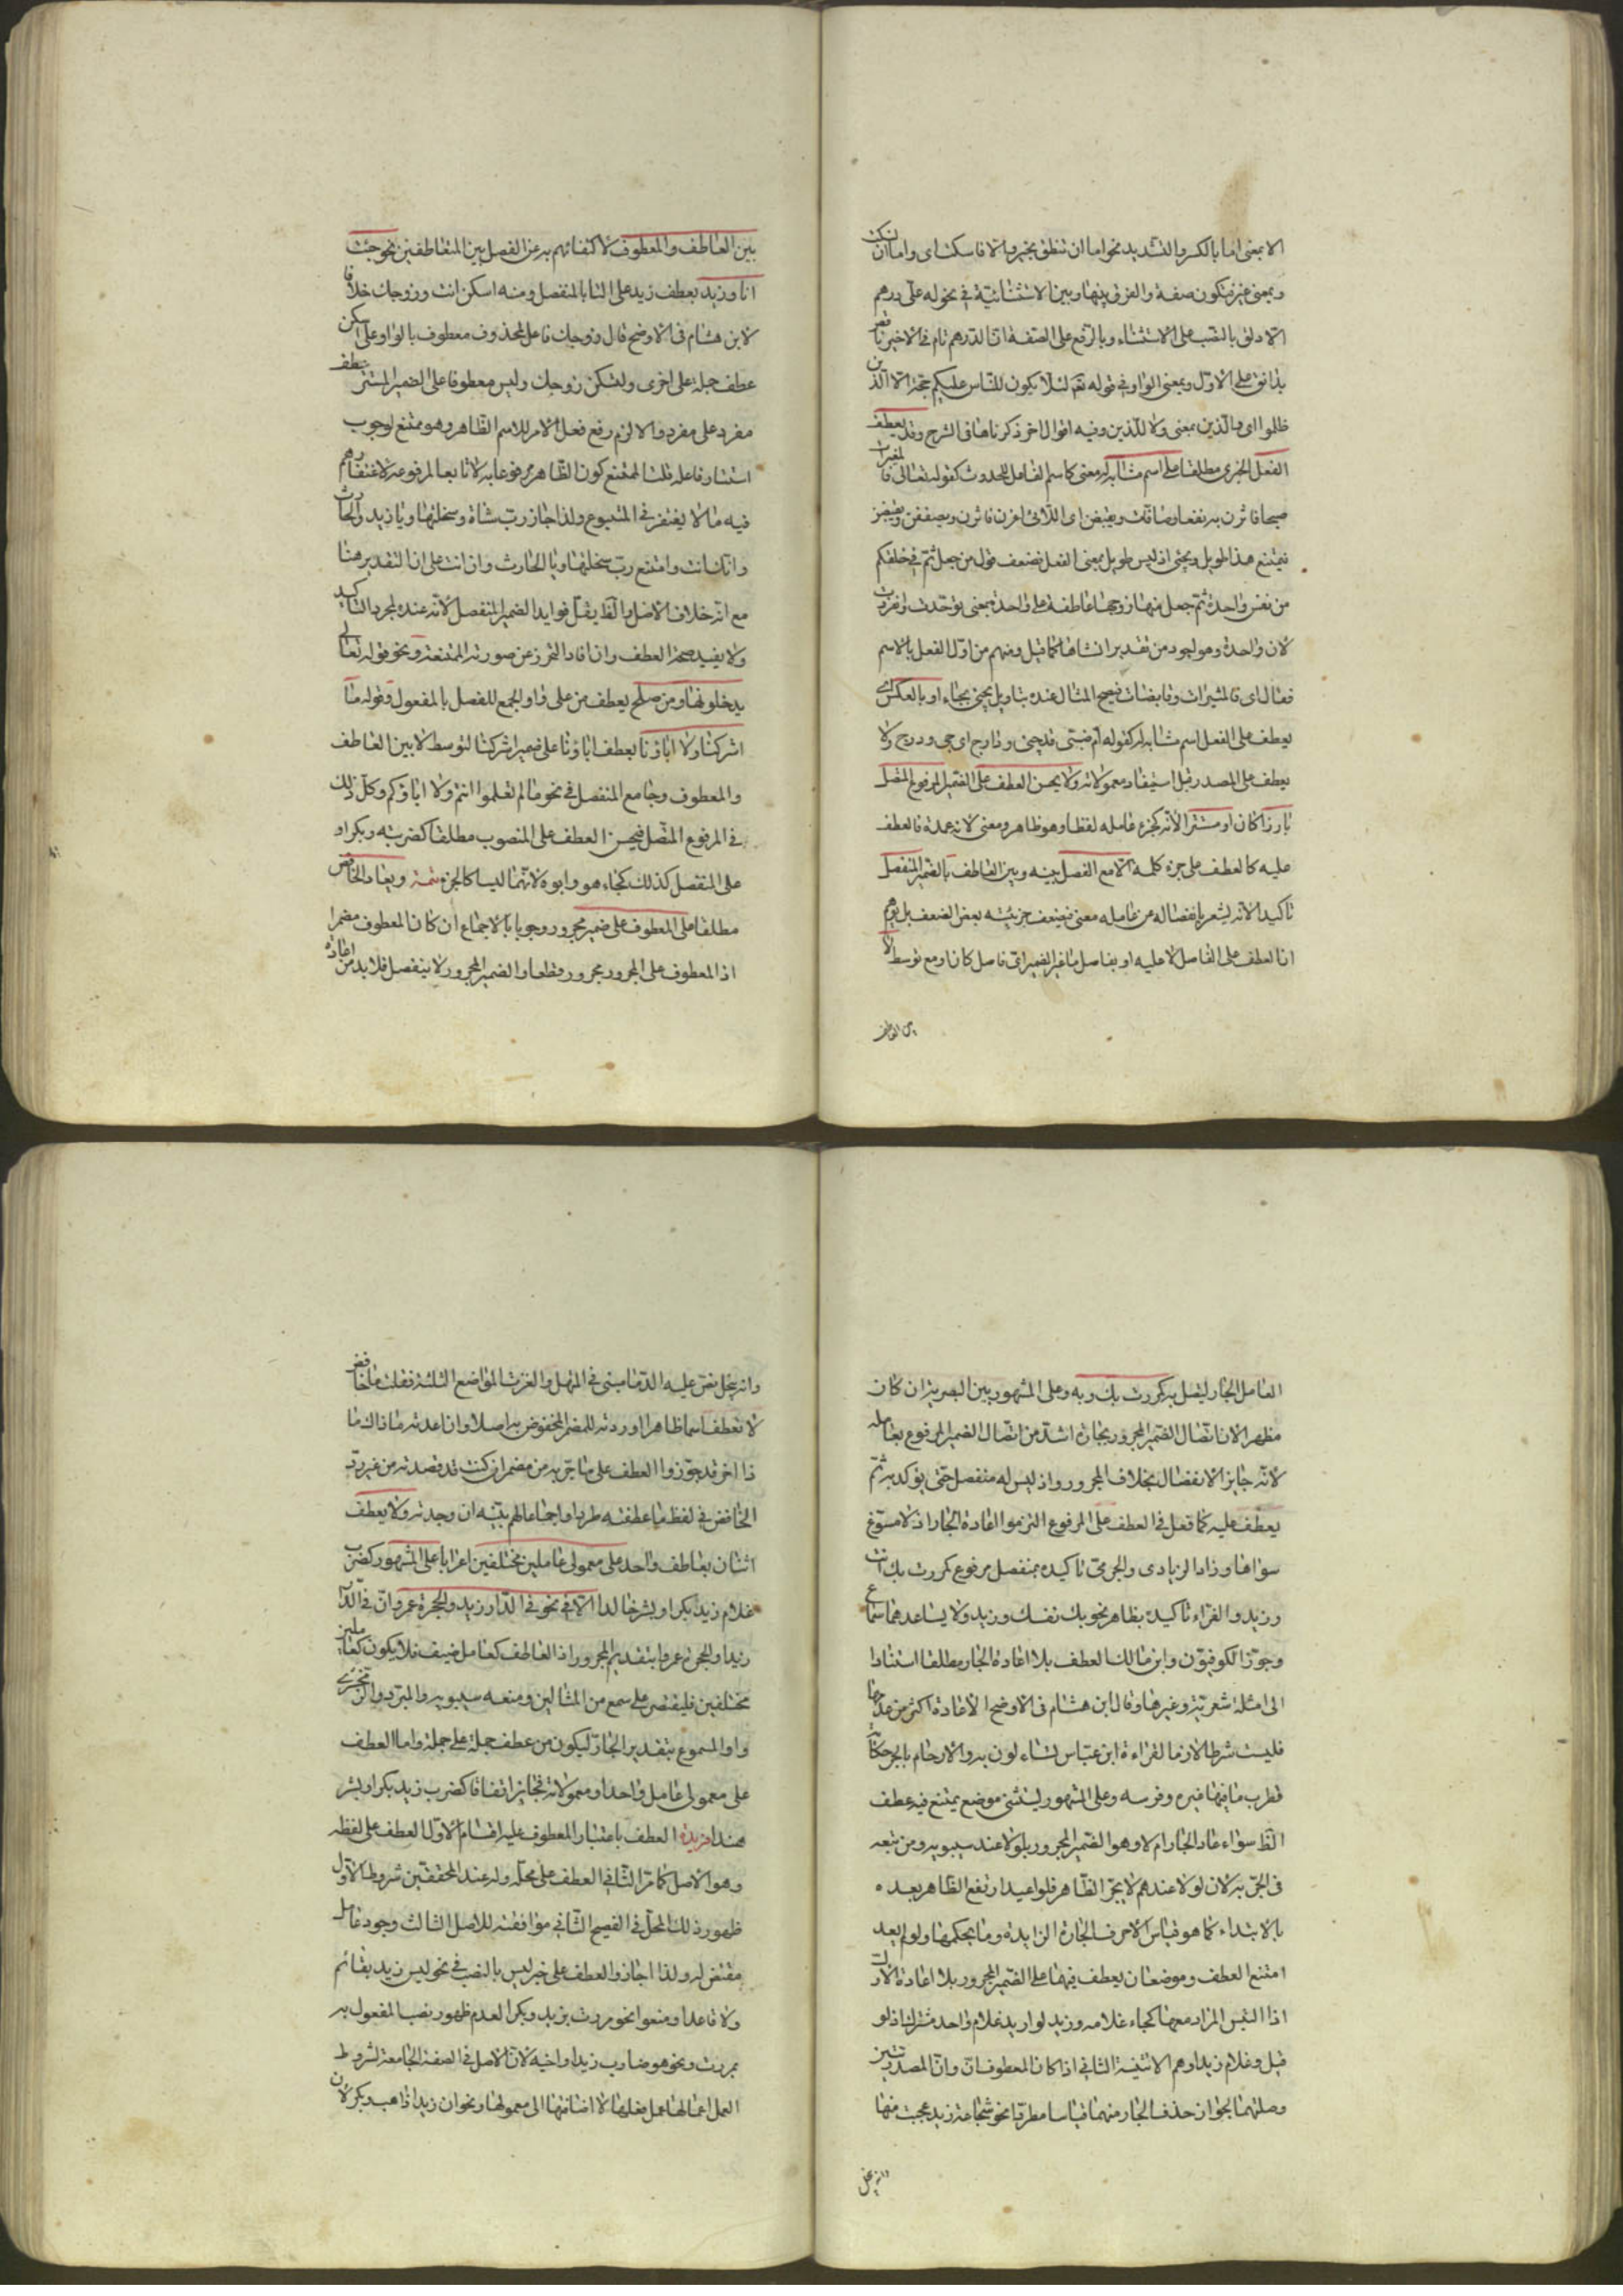 الا بمعنى اما بالكسر والتشديد نحو اما ان تنطق بخير والا فاسكت اى واما ان تسكت
وبمعنى غير فتكون صفة والفرق بينها وبين الاستثنائية فى نحو له على درهم
الا دانق بالنصب على الاستثناء وبالرفع على الصفة ان الدرهم تام فى الاخير ناقص
بدانق على الاول وبمعنى الواو فى قوله تعالى لئلا يكون للناس عليكم حجة الا الذين
ظلموا اى والذين بمعنى ولا للذين وفيه اقوال اخر ذكرناها فى الشرح وقد يعطف
الفعل الخبرى مطلقا على اسم مشابه له معنى كاسم الفاعل للحدوث كقوله تعالى فالمغيرات
صبحا فاثرن به نقعا وصافات ويقبضن اى اللائى اغرن فاثرن ويصففن ويقبضن
فيمتنع هذا طويل ويجئ اذ ليس طويل بمعنى الفعل فضعف قول من جعل ثم فى خلقكم
من نفس واحدة ثم جعل منها زوجها عاطفة على واحدة بمعنى توحدت وانفردت
لان واحدة وهو اجود من تقدير انشاها كما قيل ومنهم من اول الفعل بالاسم
فقال اى فالمثيرات وقابضات فيصح المثال عنده بتاويل يجئ بجاء او بالعكس اى
يعطف على الفعل اسم مشابه له كقوله ام صبى قد حبى ودارج اى حبى ودرج ولا
يعطف على المصدر قبل استيفاء معمولاته ولا يحسن العطف على الضمير المرفوع المتصل
بارزا كان او مستترا لانه كجزء عامله لفظا وهو ظاهر ومعنى لانه عمدة فالعطف
عليه كالعطف على جزء كلمة الا مع الفصل بينه وبين العاطف بالضمير المنفصل
تاكيدا لانه يشعر بانفصاله من عامله معنى فيضعف جزئيته بعض الضعف بل يوهم
ان العطف على الفاصل لا عليه او بفاصل ما غير الضمير اى فاصل كان او مع توسط لا
بين العاطف
بين العاطف والمعطوف لاكتفائهم به عن الفصل بين المتعاطفين نحو جئت
انا وزيد بعطف زيد على التا بالمنفصل ومنه اسكن انت وزوجك خلافا
لابن هشام فى الاوضح قال وزوجك فاعل لمحذوف معطوف بالواو على اسكن
عطف جملة على اخرى وليسكن زوجك وليس معطوفا على الضمير المستتر بعطف
مفرد على مفرد والا لزم رفع فعل الامر للاسم الظاهر وهو ممتنع لوجوب
استتار فاعله قلت الممتنع كون الظاهر مرفوعا به لا تابعا لمرفوعه لاغتفارهم
فيه ما لا يغتفر فى المتبوع ولذا جاز رب شاة وسخلتها ويا زيد والحارث
وانك انت وامتنع رب سخلتها ويا الحارث وان انت على ان التقدير هنا
مع انه خلاف الاصل والظ يقلل فوايد الضمير المنفصل لانه عنده لمجرد التاكيد
ولا يفيد صحة العطف وان افاد التحرز عن صورته الممتنعة ونحو قوله تعالى
يدخلونها ومن صلح بعطف من على واو الجمع للفصل بالمفعول وقوله ما
اشركنا ولا اباؤنا بعطف اباؤنا على ضمير اشركنا لتوسط لا بين العاطف
والمعطوف وجامع المنفصل فى نحو ما لم تعلموا انتم ولا اباؤكم وكل ذلك
فى المرفوع المتصل فيحسن العطف على المنصوب مطلقا كضربته وبكرا و
على المنفصل كذلك كجاء هو وابوه لانهما ليسا كالجزء تتمة ويعاد الخافض
مطلقا على المعطوف على ضمير مجرور وجوبا بالاجماع ان كان المعطوف مضمرا
اذ المعطوف على المجرور مجرور قطعا والضمير المجرور لا ينفصل فلابد من اعادة
العامل الجار ليتصل به كمررت بك وبه وعلى المشهور بين البصريين ان كان
مظهرا لان اتصال الضمير المجرور بجاره اشد من اتصال الضمير المرفوع بعامله
لانه جايز الانفصال بخلاف المجرور واذ ليس له منفصل حتى يؤكد به ثم
يعطف عليه كما فعل فى العطف على المرفوع التزموا اعادة الجار اذ لا مسوغ
سواها وزاد الزيادى والجرمى تاكيده بمنفصل مرفوع كمررت بك انت
وزيد والفراء تاكيده بظاهر نحو بك نفسك وزيد ولا يساعدهما سماع
وجوز الكوفيون وابن مالك العطف بلا اعادة الجار مطلقا استنادا
الى امثلة شعرية وغيرها وقال ابن هشام فى الاوضح الاعادة اكثر من عدمها
فليست شرطا لازما لقراءة ابن عباس تساءلون به والارحام بالجر وحكاية
قطرب ما فيها غيره وفرسه وعلى المشهور ليستثنى موضع يمتنع فيه عطف
الظ سواء عاد الجار ام لا وهو الضمير المجرور بلولا عند سيبويه ومن تبعه
فى الجر به لان لولا عندهم لا يجر الظاهر فلو اعيد ارتفع الظاهر بعده
بالابتداء كما هو قياس الاحرف الجارة الزايدة وما بحكمها ولو لم يعد
امتنع العطف وموضعان يعطف فيهما على الضمير المجرور بلا اعادة الاول
اذا التبس المراد معها كجاء غلامه وزيد لو اريد غلام واحد مشترك اذ لو
قيل وغلام زيد اوهم الاثنينية الثانى اذا كان المعطوف ان وان المصدريتين
وصلتهما لجواز حذف الجار منهما قياسا مطردا نحو شجاعة زيد عجبت منها
وانه بخل
وانه بخل نص عليه الدمامينى فى المنهل والغزت المواضع الثلثة فقلت ما خافض
لا تعطف اسما ظاهرا اوردته للمضمر المخفوض به اصلا وان اعدته ما ذاك ما
ذا اخر قد جوزوا العطف على ما جر به من مضمر ان كنت قد قصدته من غير رد
الخافض فى لفظ ما عطفته طردا واجماعا لهم بينه ان وجدته ولا يعطف
اثنان بعاطف واحد على معمولى عاملين مختلفين اعرابا على المشهور كضرب
غلام زيد بكرا وبشر خالدا الا فى نحو فى الدار زيد والحجرة عمرو وان فى الدار
زيدا والحجرة عمروا بتقديم المجرور اذ العاطف كعامل ضعيف فلا يكون كعاملين
مختلفين فليقتصر على سمع من المثالين ومنعه سيبويه والمبرد والزمخشرى
واولوا المسموع بتقدير الجار ليكون من عطف جملة على جملة واما العطف
على معمولى عامل واحد او معمولاته فجايز اتفاقا كضرب زيد بكرا وبشر
هندا فريدة العطف باعتبار المعطوف عليه اقسام الاول العطف على لفظه
وهو الاصل كما مر الثانى العطف على محله وله عند المحققين شروط الاول
ظهور ذلك المحل فى الفصيح الثانى موافقته للاصل الثالث وجود عامل
مقتض له ولذا اجازوا العطف على خبر ليس بالنصب فى نحو ليس زيد بقائم
ولا قاعدا ومنعوا نحو مررت بزيد وبكرا لعدم ظهور نصب المفعول به
بمررت ونحو هو ضارب زيدا واخيه لان الاصل فى الصفة الجامعة لشروط
العمل اعمالها عمل فعلها لا اضافتها الى معمولها ونحو ان زيدا ذاهب وبكر لان